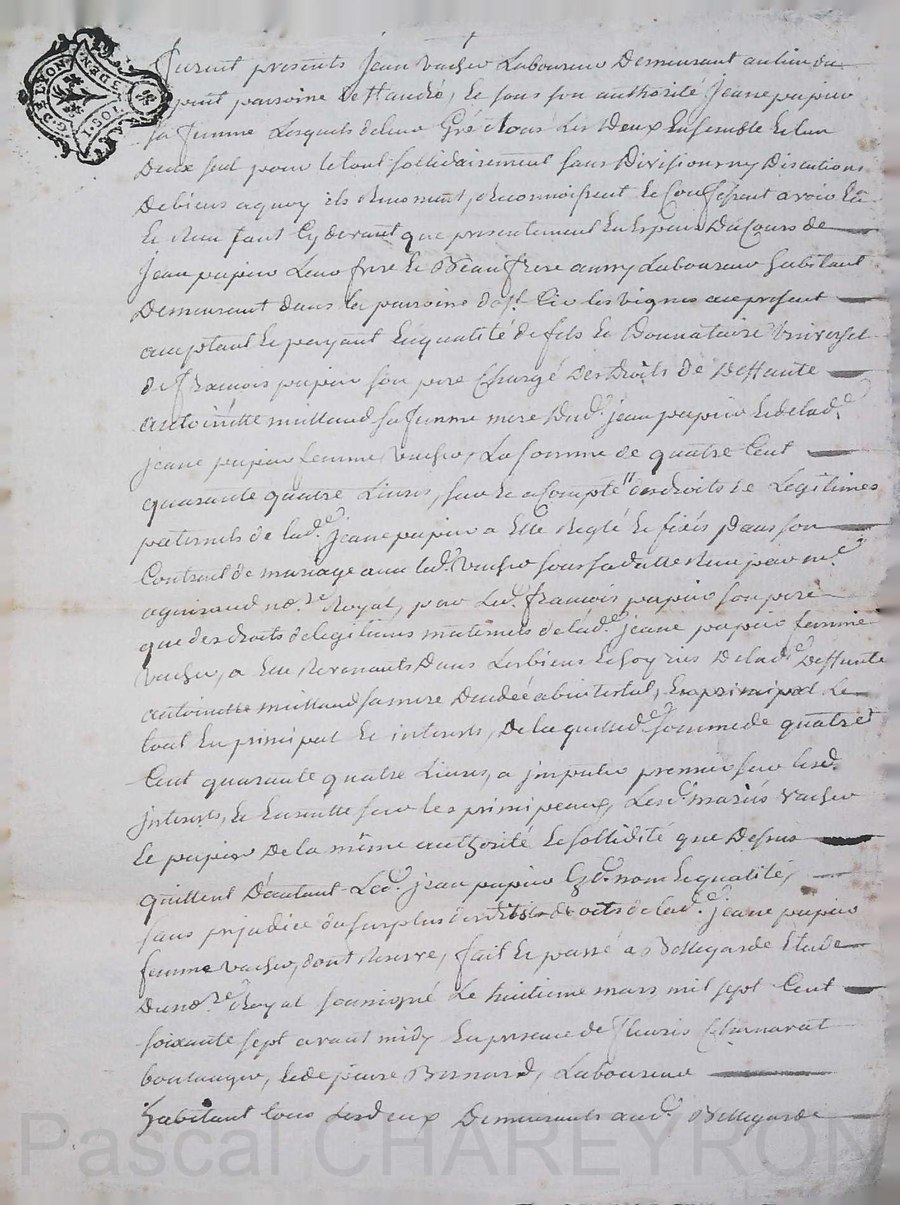 G. DE LYON
1. SOL
Furent presents Jean vacher Laboureur Demeurant au lieu du
paroisse de St andré, et sous son authorité Jeane papier
sa femme Lesquels de leur Gré tous Les Deux Ensemble et lun
Deux seul pour le tout sollidairement sans Division ny Discutions
De biens a quoy ils Renoncent, Reconnoissent et Confessent avoir Eû
et Receu tant Cy devant que presentement En Especes Du Cours de
Jean papier Leur frere et Beau frere aussy Laboureur habitant
Demeurant dans la paroisse de st. Cir les vignes au present
acceptant et payant En qualité de fils et Donnataire Universel
de francois papier son pere Chargé Des Droits de Deffunte
antoinette millaud sa femme mere Dud. jean papier et de lad.e
jeane papier femme vacher, La somme de quatre Cent
quarante quatre Livres, sur et a Compte des droits de Legitimes
paternels de lad.e jeane papier a Elle Reglé et fixés Dans son
Contract de mariage avec led. vacher sous sa datte Receu par m.e
no.re Royal, par Led. francois papier son pere
que des droits de legitimes maternels de lad.e jeane papier femme
vacher, a Elle Revenants Dans Les biens et hoyries De lad.e Deffunte
antoinette millaud sa mere Decedée abintestat, En principal et
tout En principal et interests, De laquelle d.e somme de quatre
Cent quarante quatre Livres, a imputer premier sur lesd.
interests, et Ensuitte sur les principeaux, Les d. mariés vacher
et papier De la même authorité et sollidité que Dessus
quittent D'autant Led. jean papier Esd. nom et qualité,
sans prejudice du surplus desd. droits de lad.e jeane papier
femme vacher, dont Reserve, fait et passé a Bellegarde Etude
Du no.re Royal soussigné Le huitieme mars mil sept Cent
soixante sept avant midy En presence de fleury Charavat
boulanger, et de pierre Bernard, Laboureur
habitant tous Les deux Demeurants aud. Bellegarde
Pascal CHAREYRON